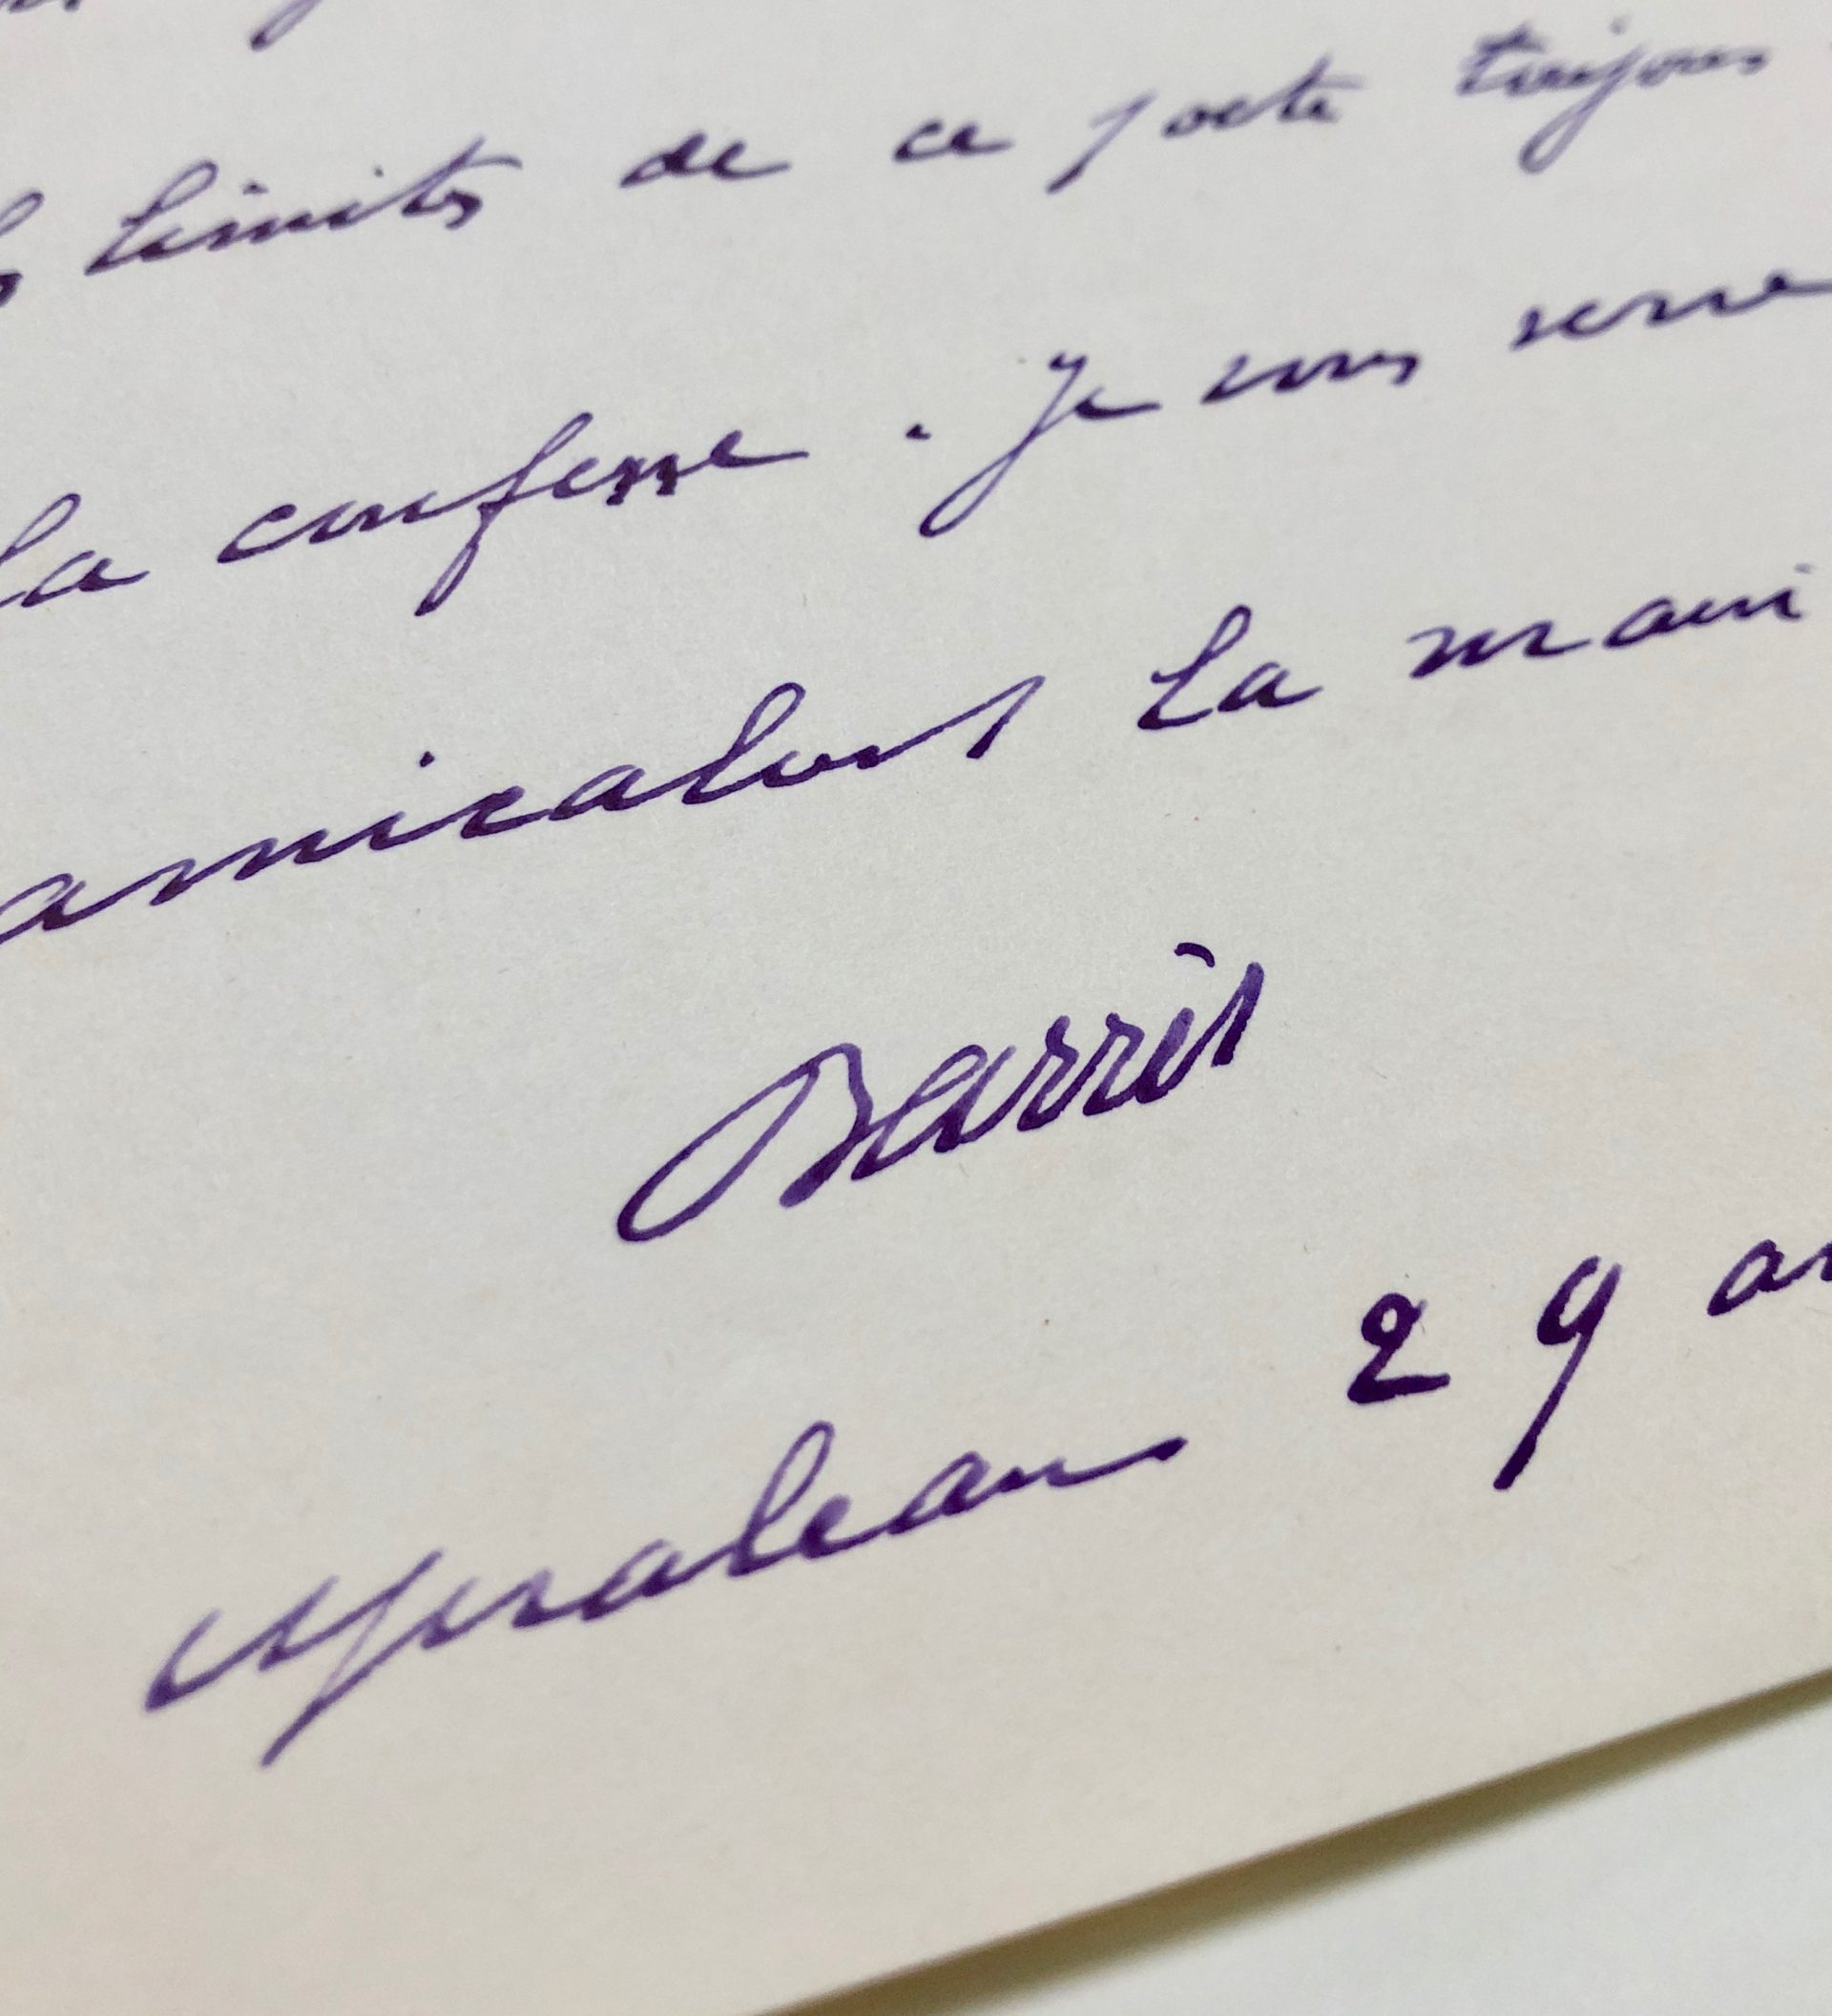 limites de ce poete toujours
la confesse. Je vous serre
amicalement la main
Barrès
29